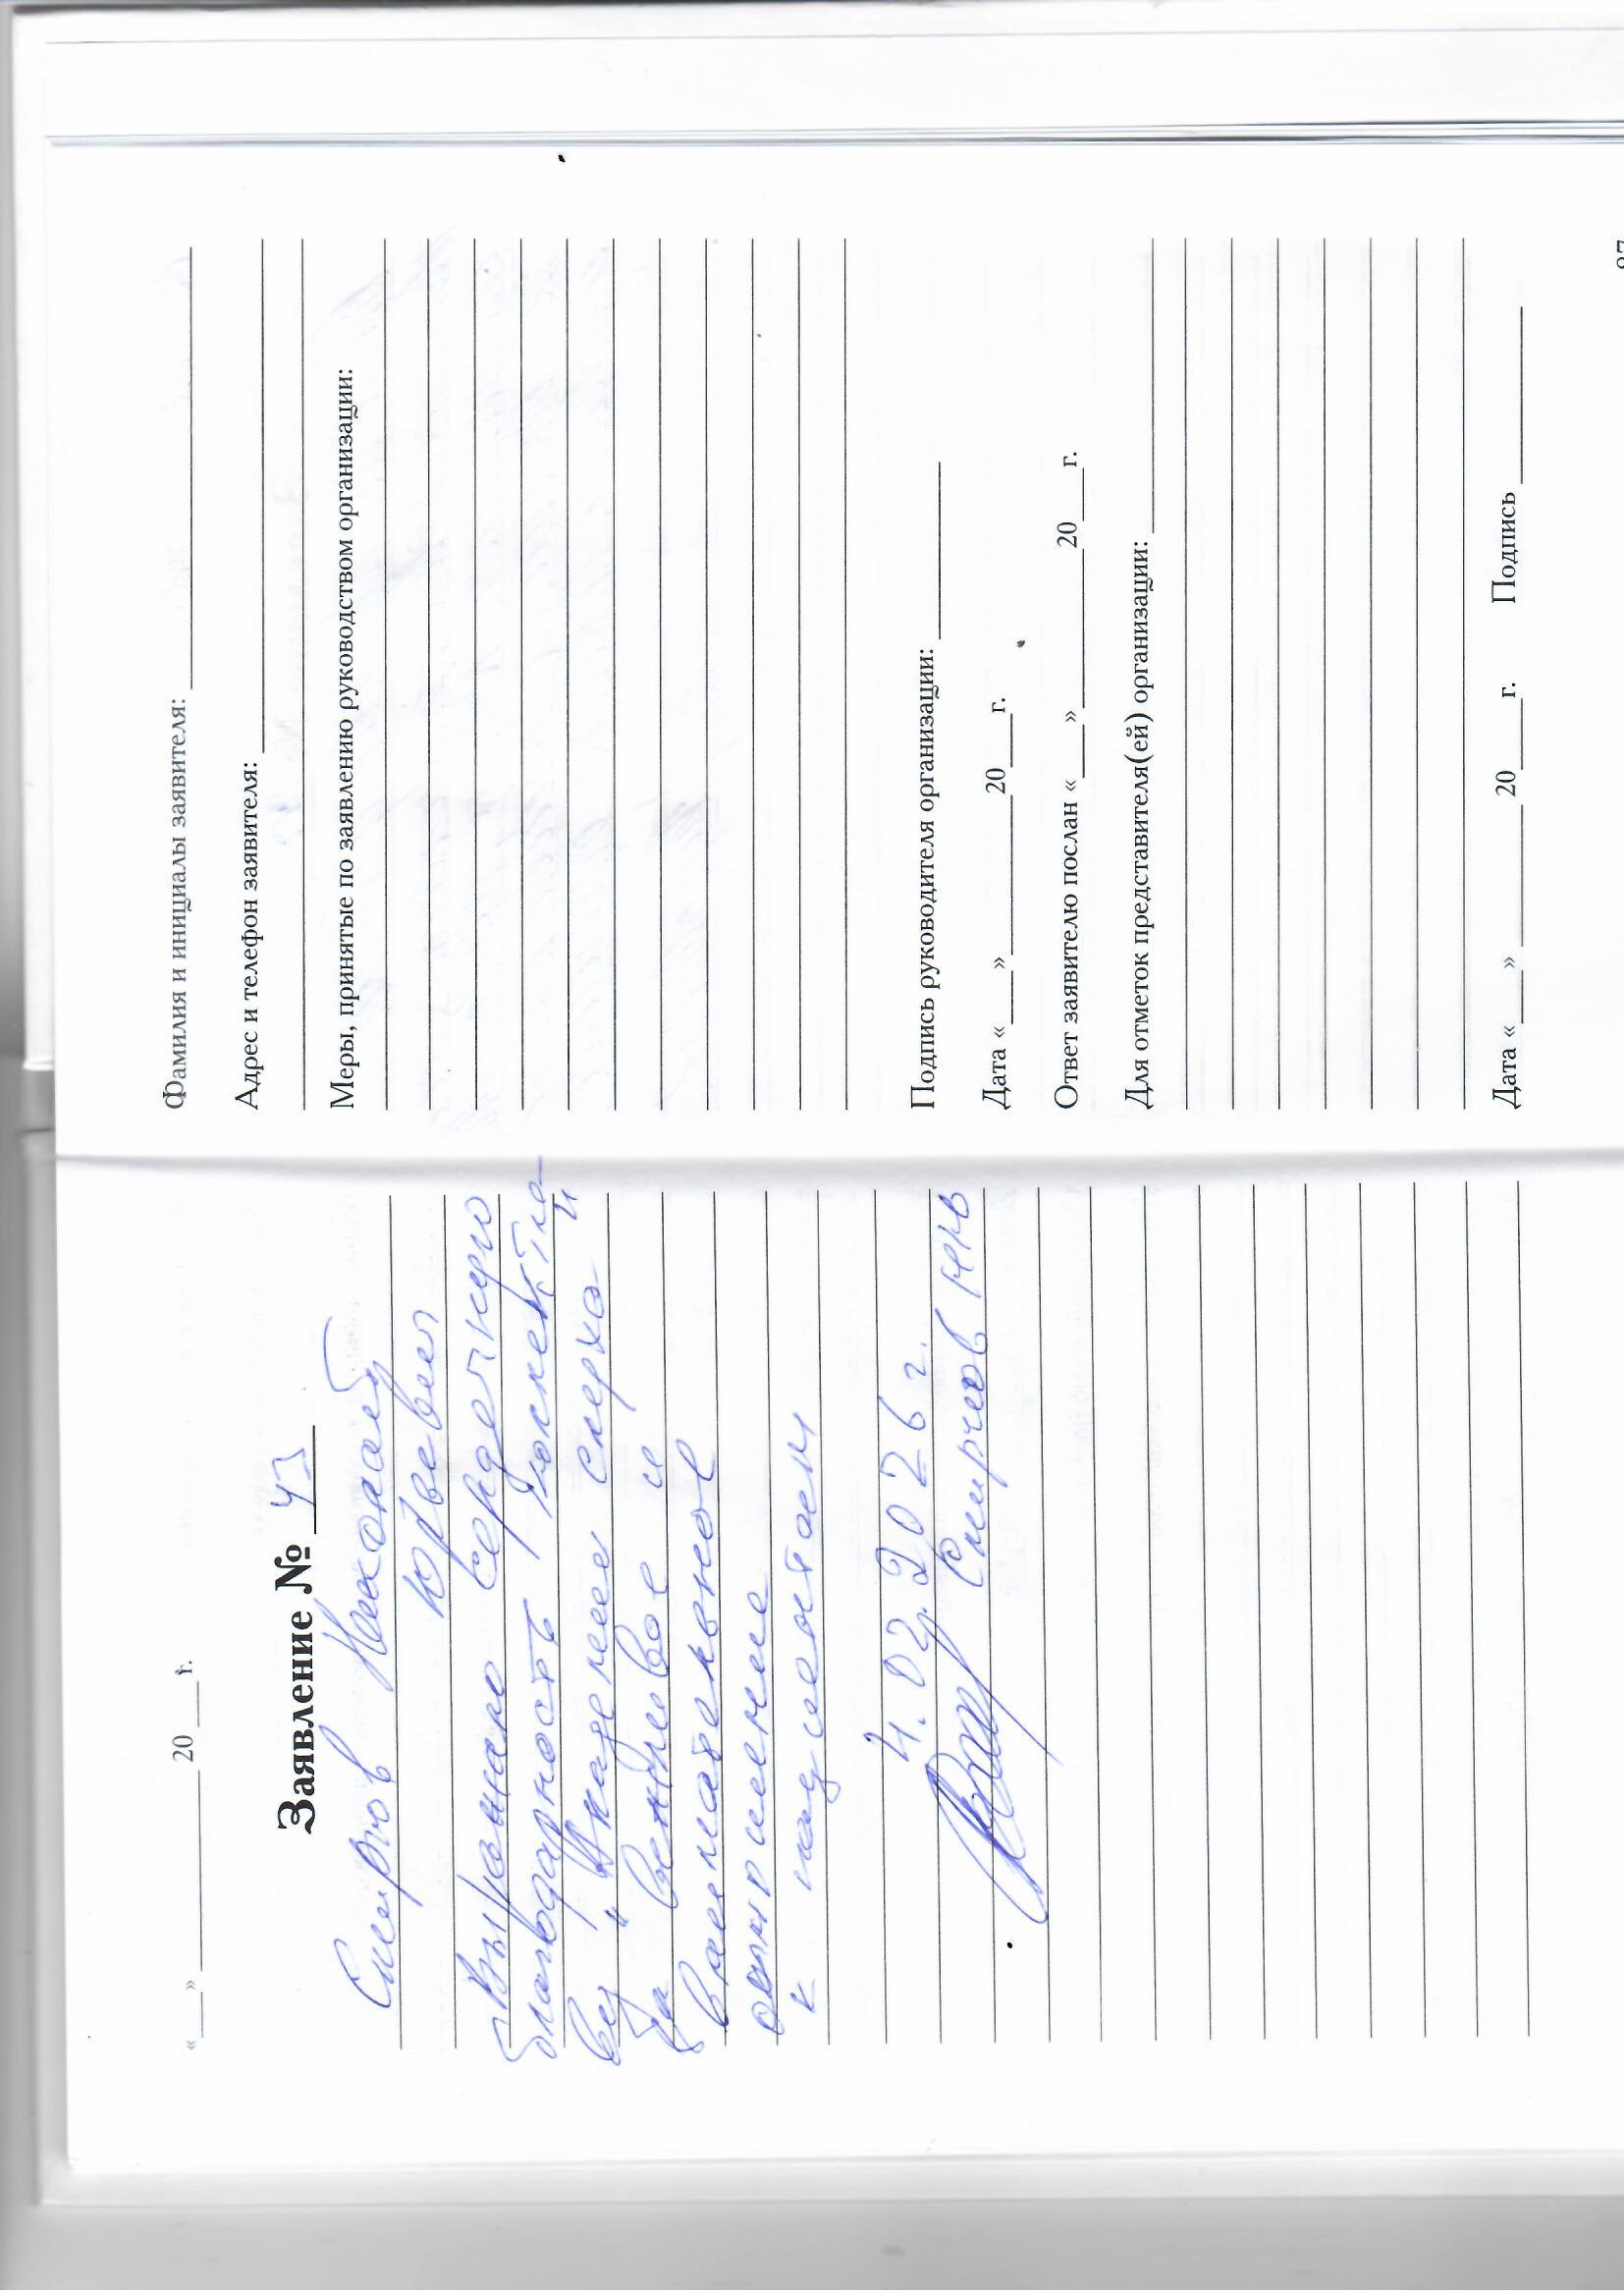 «___» __________ 20 ___ г.
Заявление № 43
Смирнов
Юрьевич
Выражаю сердечную
благодарность
вежливое и
внимательное
отношение
к пациентам
4.02.2026 г.
Смирнов
Фамилия и инициалы заявителя:
Адрес и телефон заявителя:
Меры, принятые по заявлению руководством организации:
Подпись руководителя организации:
Дата «___» __________ 20___ г.
Ответ заявителю послан «___» __________ 20___ г.
Для отметок представителя(ей) организации:
Дата «___» __________ 20___ г. Подпись
87